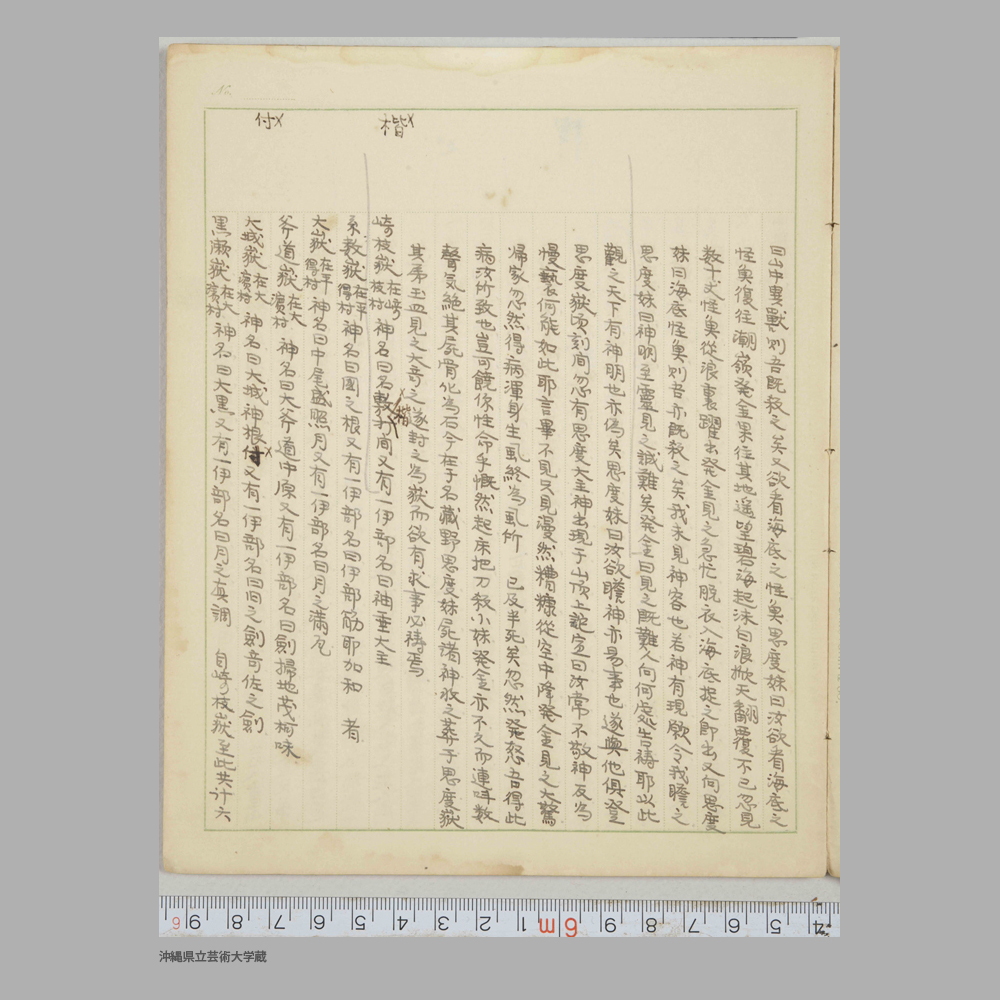 曰山中異獣則吾既殺之矣又欲看海底之怪奧思度妹曰汝欲看海底之
怪奧復往潮嶺発金果往其地遙望碧海起沫白浪掀天翻覆不已忽見
数十丈怪奧從浪裏躍出発金見之急忙脱衣入海底捉之即出又向思度
妹曰海底怪奧則吾亦既殺之矣我未見神客也若神有現歟令我瞻之
思度妹曰神明至靈見之誠難矣発金曰見之既難人向何處告祷耶以此
觀之天下有神明也亦偽矣思度妹曰汝欲瞻神亦易事也遂與他俱登
思度嶽頃刻間忽有思度大主神出現于山頂上託宣曰汝常不敬神反為
慢褻何能如此耶言畢不見只見漫然糟糠從空中降発金見之大驚
帰家忽然得病渾身生虱終為虱所　已及半死矣忽然発怒吾得此
病汝所致也豈可饒你性命乎慨然起床把刀殺小妹発金亦不久而連呌数
聲気絶其屍骨化為石今在于名藏野思度妹屍諸神收之葬于思度嶽
其弟玉皿見之大奇之遂封之為嶽而欲有求事必祷焉
崎枝嶽在崎枝村 神名曰名敷楷間又有一伊部名曰神垂大主
糸数嶽在平得村 神名曰國之根又有一伊部名曰伊部筋耶加和　者
大嶽在平得村 神名曰中尾盛照月又有一伊部名曰月之満元
斧道嶽在大濱村 神名曰大斧道中原又有一伊部名曰劍掃地茂柯味
大城嶽在大濱村 神名曰大城神根付又有一伊部名曰之劍奇佐之劍
黒瀬嶽在大濱村 神名曰大黒又有一伊部名曰月之真調　自崎枝嶽至此共計六
楷×
付×
No.
沖縄県立芸術大学蔵